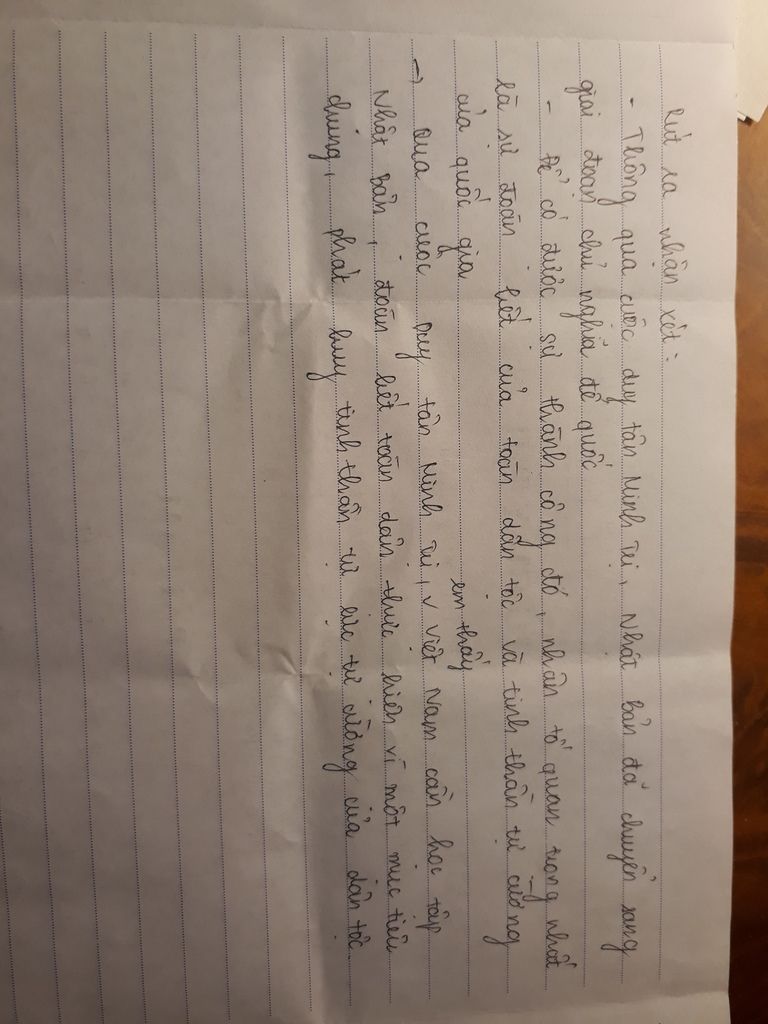 Rút ra nhận xét:
- Thông qua cuộc duy tân Minh Trị, Nhật bản đã chuyển sang
giai đoạn chủ nghĩa đế quốc
- Để có được sự thành công đó, nhân tố quan trọng nhất
là sự đoàn kết của toàn dân tộc và tinh thần tự cường
của quốc gia
→ Qua cuộc Duy tân Minh Trị, ∨ Việt Nam cần học tập
em thấy
Nhật bản, đoàn kết toàn dân thực hiện vì một mục tiêu
chung, phát huy tinh thần tự lực tự cường của dân tộc.